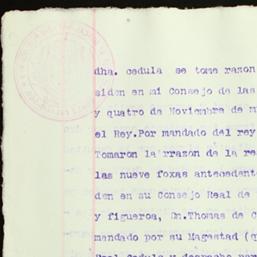 dha. cedula se tome razon
siden en mi Consejo de las
y quatro de Noviembre de m
el Rey.Por mandado del rey
Tomaron la rrazon de la re
las nueve foxas antecedent
den en su Consejo Real de
y figueroa, Dn.Thomas de C
mandado por su Magestad (q
Real Cedula y despacho